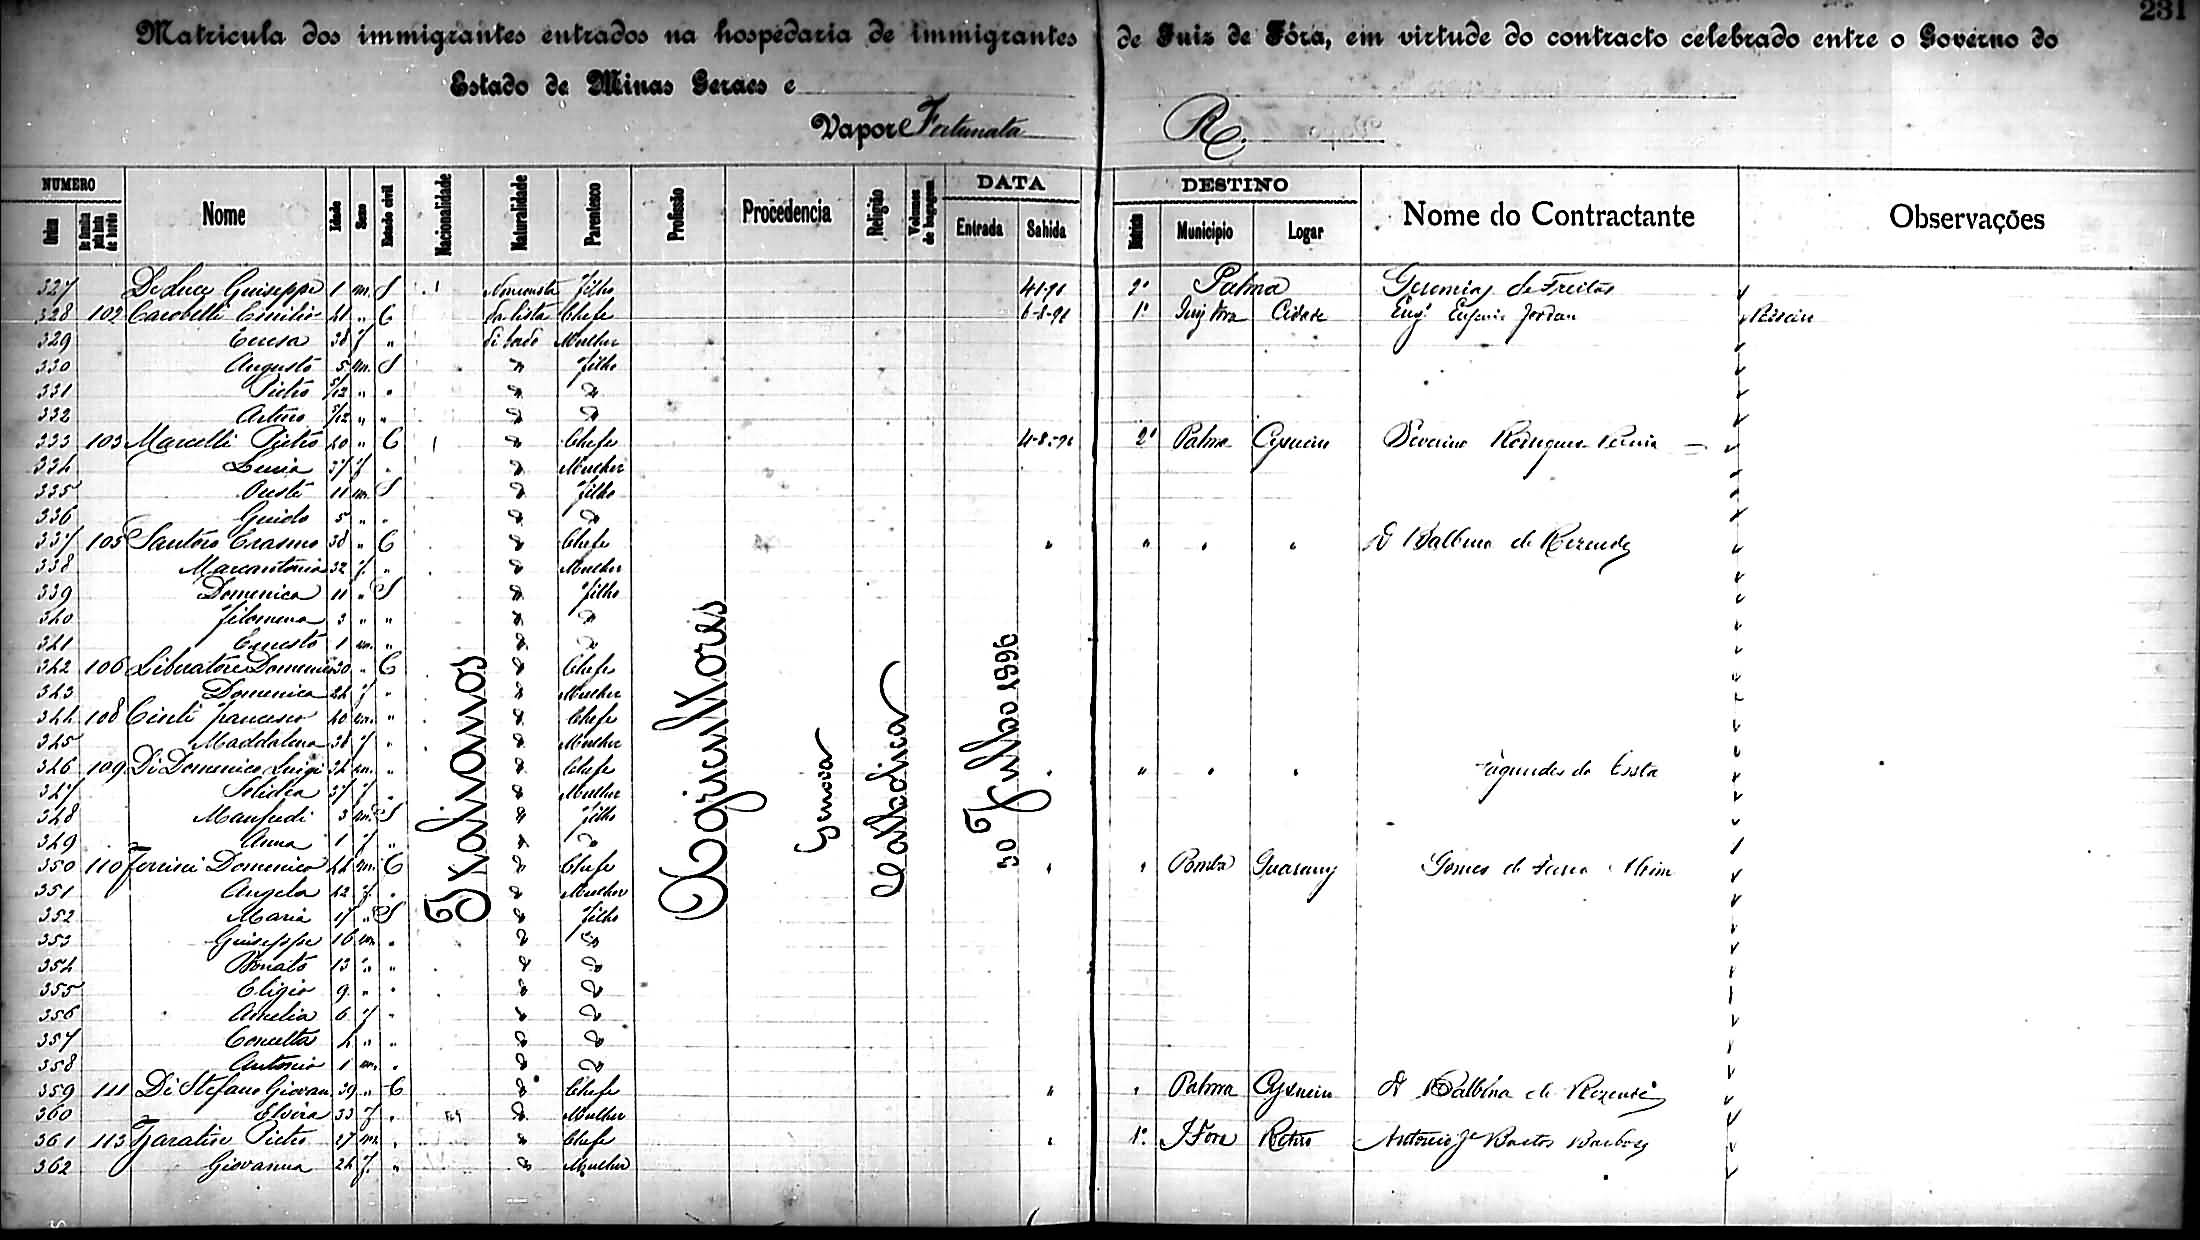 231
Matricula dos immigrantes entrados na hospedaria de immigrantes de Juiz de Fóra, em virtude do contracto celebrado entre o Governo do
Estado de Minas Geraes e
Vapor Fortunata R.
NUMERO DATA DESTINO
Ordem De familia pela lista de bordo Nome Idade Sexo Estado civil Nacionalidade Naturalidade Parentesco Profissão Procedencia Religião Volumes de bagagem Entrada Sahida Districto Municipio Logar Nome do Contractante Observações
327 De Luca Guiseppe 1 m. S Filho 4-8-96 2º Palma Geremias de Freitas
328 102 Carobelli Emilio 41 " C Chefe 6-8-96 1º Juiz Fora Cidade Engº Eugenio Jordan
329 Teresa 38 f " Mulher
330 Augusto 5 m. S " Filho
331 Pietro " " " "
332 Arturo " " " "
333 103 Marcelli Pietro 40 " C " Chefe 4-8-96 2º Palma Cysneiro Severino Rodrigues Pereira
334 Lucia 37 f " " Mulher
335 Oreste 11 m. S " Filho
336 Guido 5 " " " "
337 105 Santoro Erasmo 38 " C " Chefe " " " " D Balbina de Rezende
338 Marcantonia 32 f. " " Mulher
339 Domenica 11 " S " Filho
340 Filomena 3 " " " "
341 Ernesto 1 m. " " "
342 106 Liberatore Domenico 30 " C " Chefe
343 Domenica 24 f " " Mulher
344 108 Francesco 40 m. " " Chefe
345 Maddalena 38 f " " Mulher
346 109 Di Domenico Luigi 34 m. " " Chefe " " " " Fagundes da Costa
347 37 f " " Mulher
348 Manfredi 3 m. S " Filho
349 Anna 1 f " " "
350 110 Domenico 44 m. C " Chefe " " Pomba Guarany Gomes de
351 Angela 42 f. " " Mulher
352 Maria 17 " S " Filho
353 Guiseppe 16 m. " " "
354 Donato 13 " " " "
355 Eligio 9 " " " "
356 Amelia 6 f " " "
357 Concetta 4 " " " "
358 Antonio 1 m. " " "
359 111 Di Stefano Giovan 39 " C " Chefe " " Palma Cysneiro D Balbina de Rezende
360 Elvira 33 f " " Mulher
361 113 Pietro 27 m. " " Chefe " 1º J Fora Retiro Antonio Je Bastos Barbosa
362 Giovanna 24 f. " " Mulher
Italianos
Agricultores
Genova
Catholica
30 Julho 1896